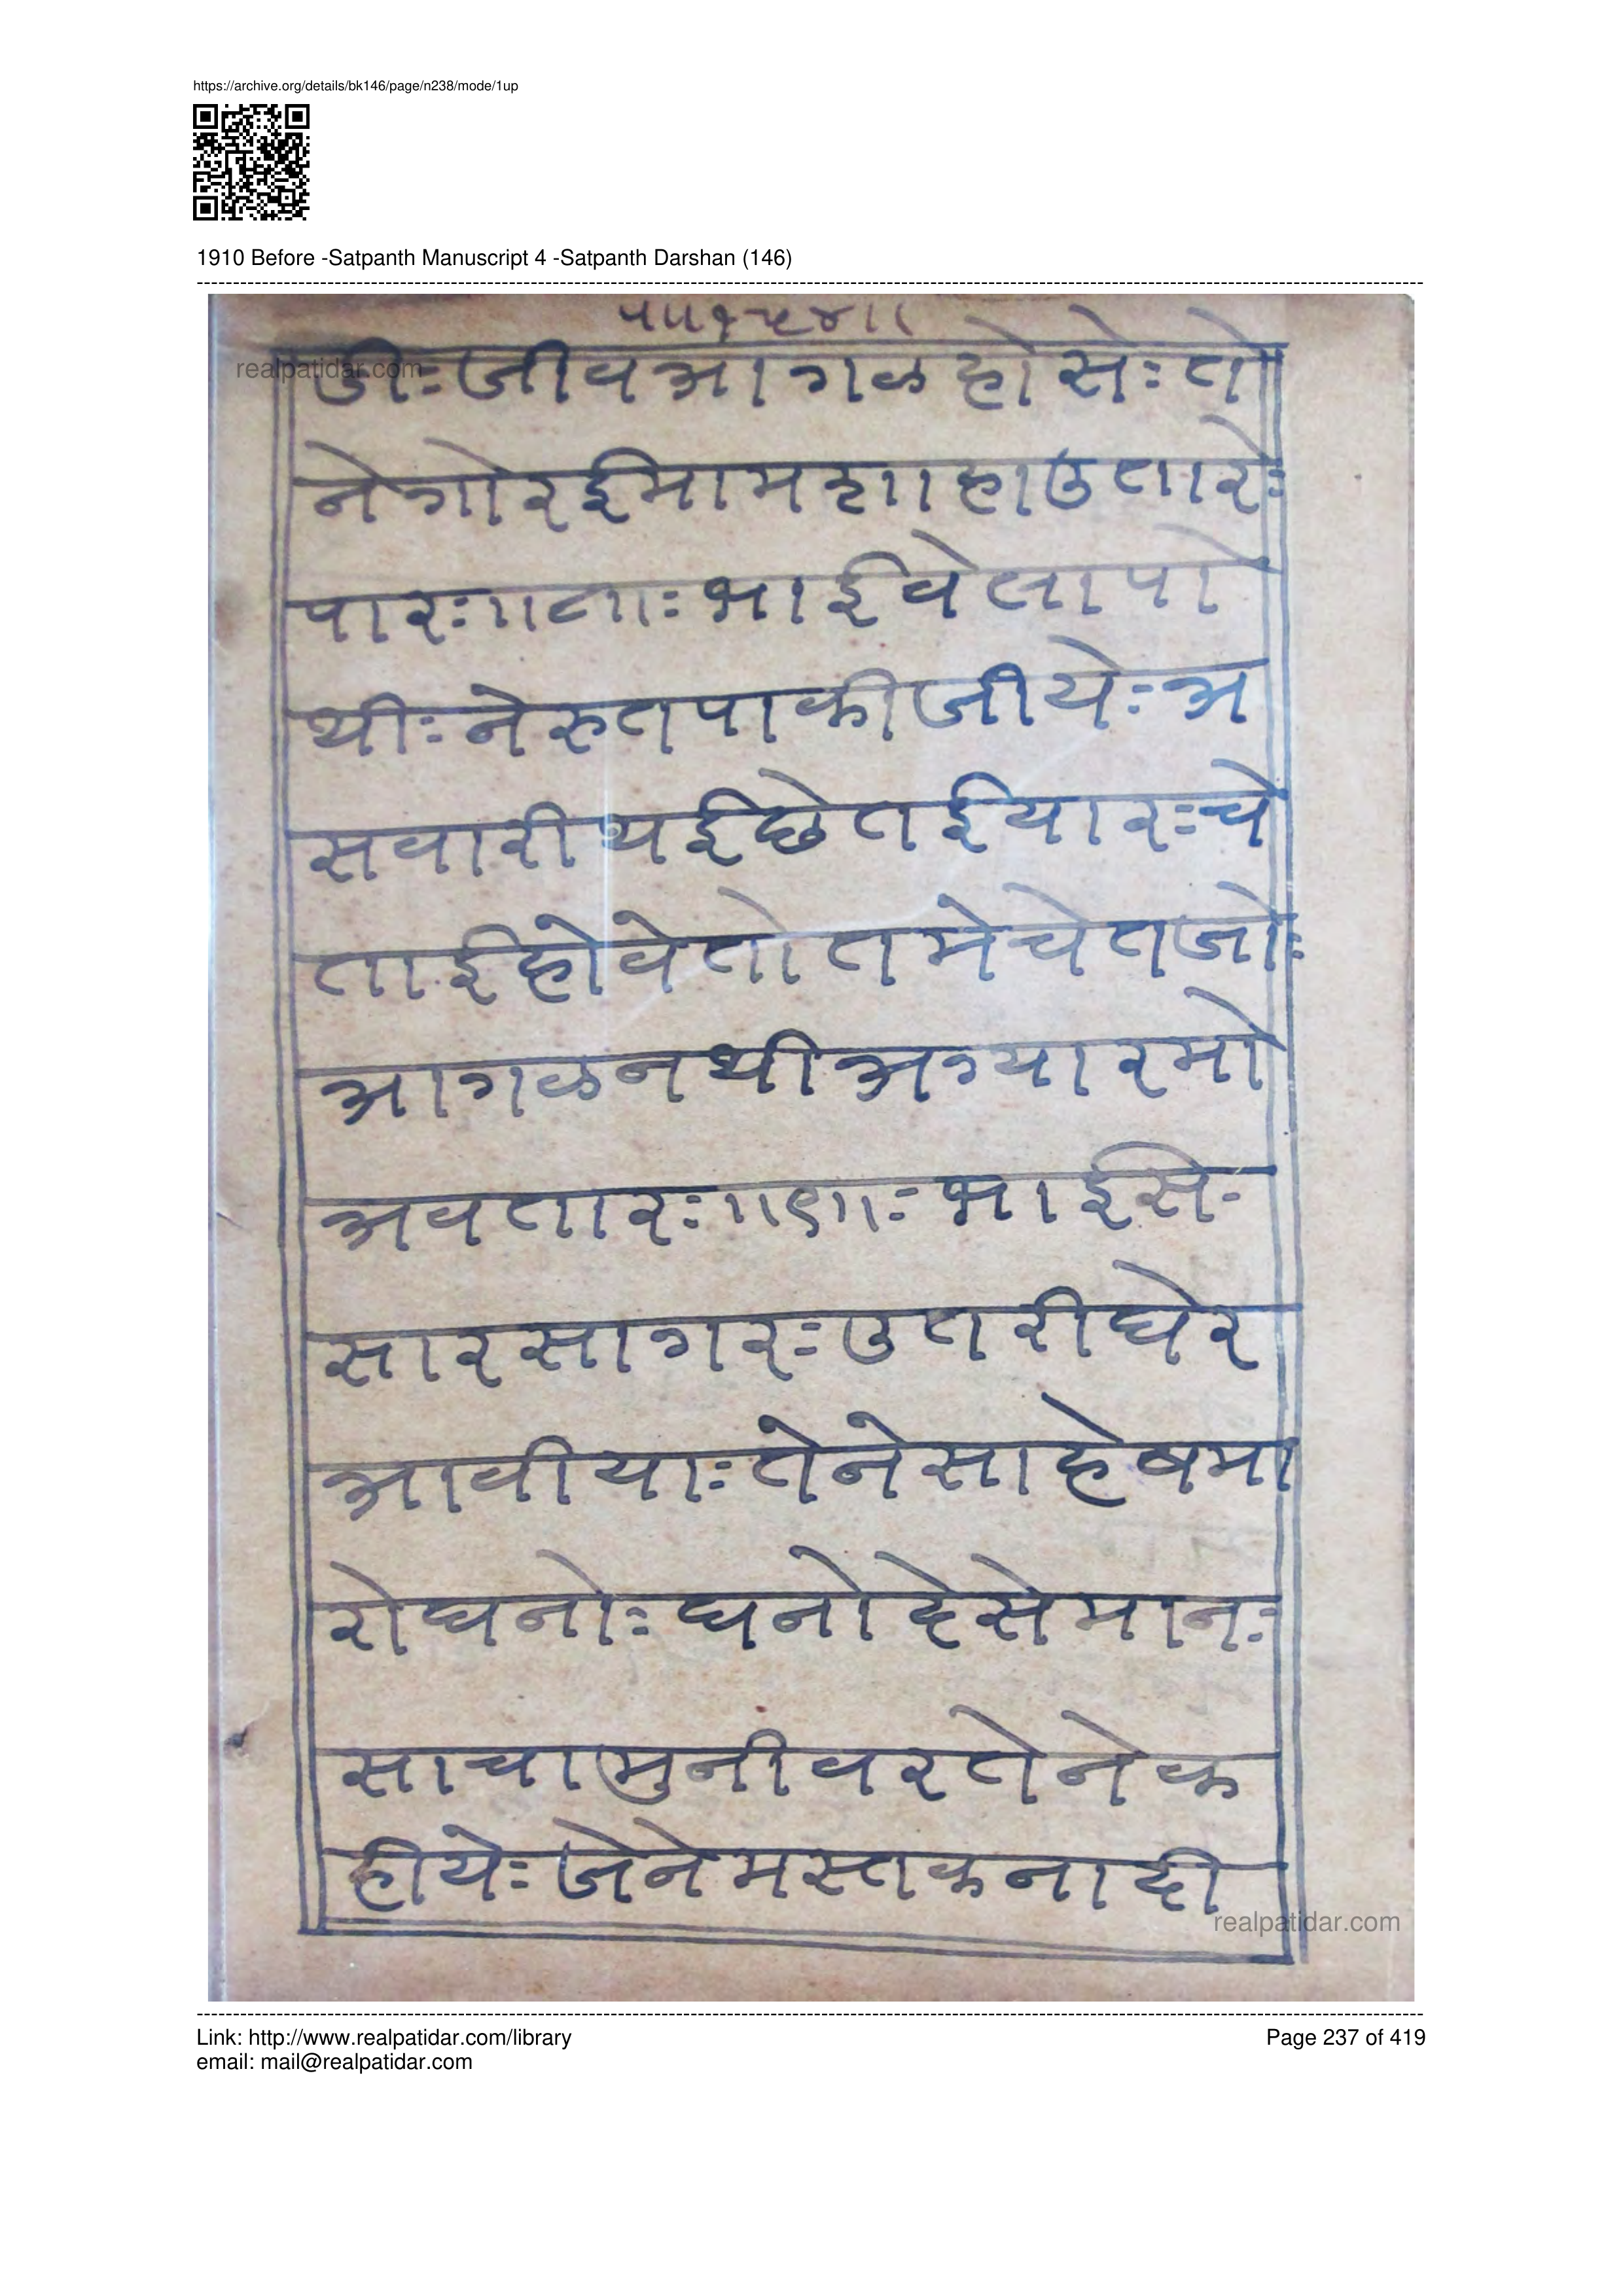 https://archive.org/details/bk146/page/n238/mode/1up
1910 Before -Satpanth Manuscript 4 -Satpanth Darshan (146)
realpatidar.com
डीः जीव आगळ होसेः ते
ने गोर ईमामशाहा उतारेः
पारः भाई वेला पो
थीः ने रुत पाकीजीयेः अ
सवारी थई छे तईयारः चे
ताई होवे तो तमे चेतजोः
आगळ नथी अग्यारमो
अवतारः भाई सं
सारसागरः उतरी घेर
आवीयाः तेने साहेब मा
रो घनोः घनो देसे मानः
साचा मुनीवर तेने क
हीयेः जेने मस्तक नादी
realpatidar.com
Link: http://www.realpatidar.com/library
Page 237 of 419
email: mail@realpatidar.com